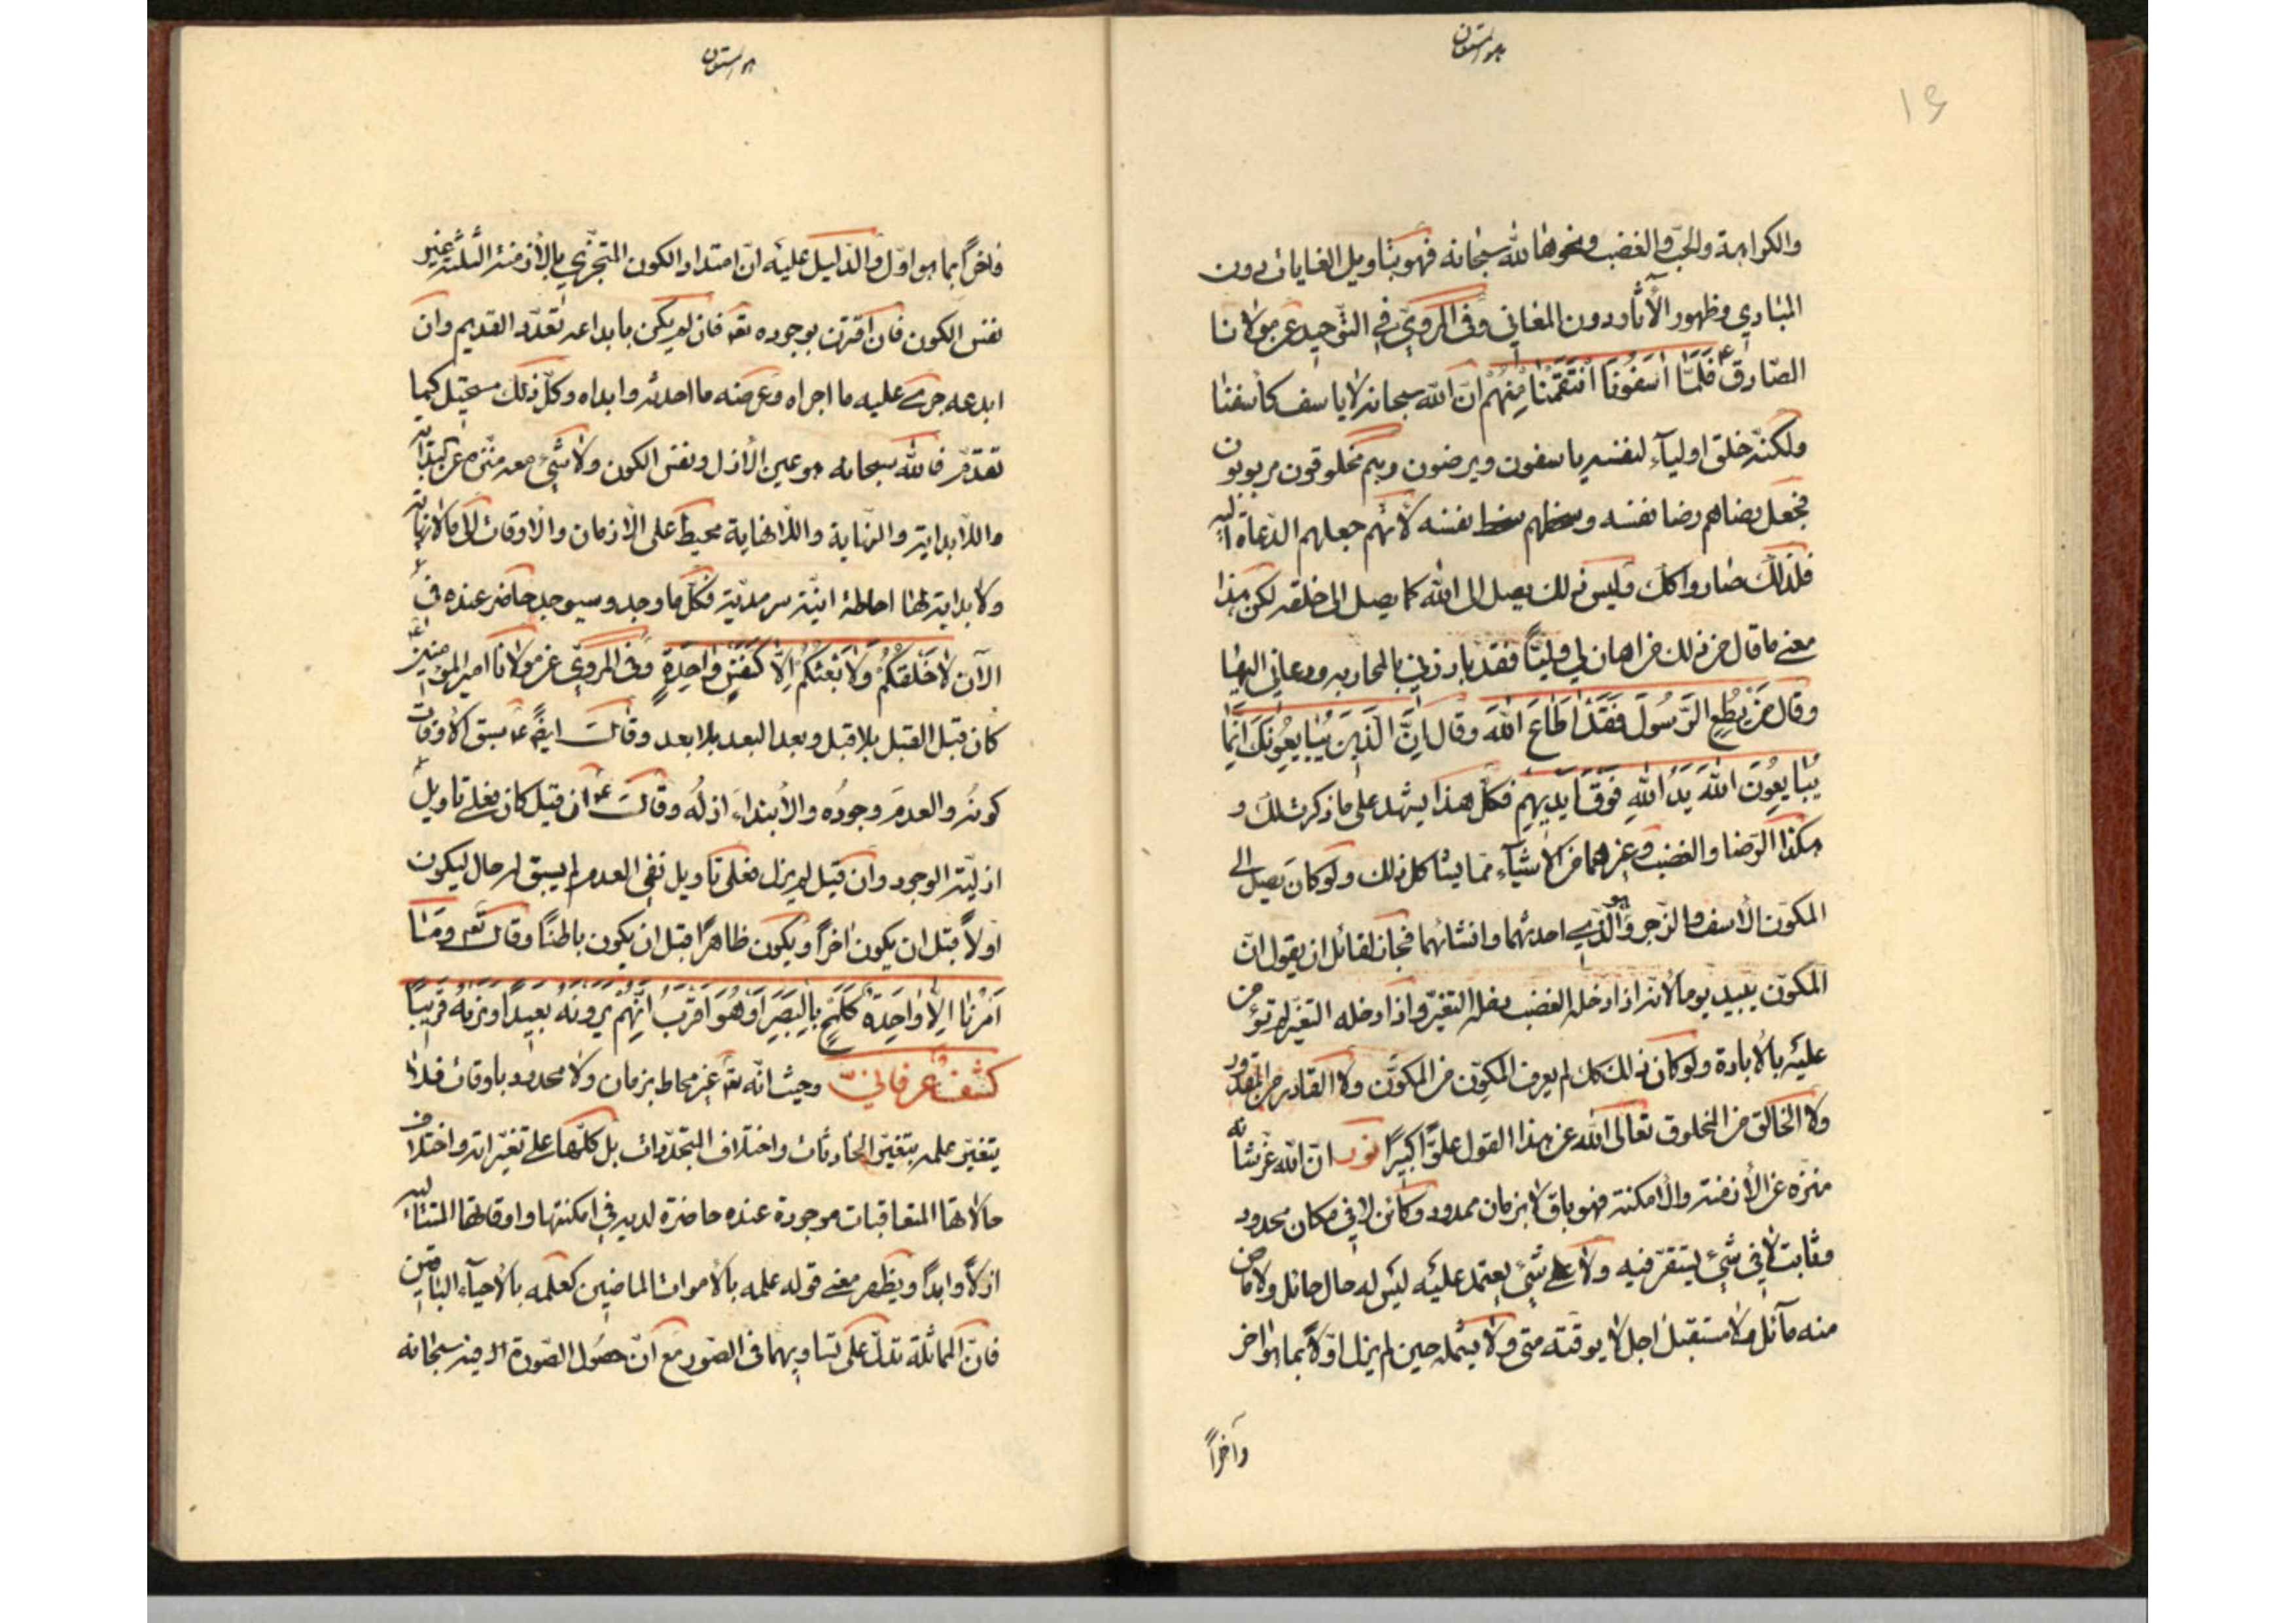 هو المستعان
١٦
والكراهة والحبّ والغضب ونحوها لله سبحانه فهو بتاويل الغايات دون
المبادي وظهور الآثار دون المعاني وفي المرويّ في التّوحيد عن مولانا
الصّادق ع فَلَمَّا اٰسَفُونَا انْتَقَمْنَا مِنْهُمْ انّ الله سبحانه لا ياسف كاسفنا
ولكنّه خلق اوليآء لنفسه ياسفون ويرضون وهم مخلوقون مربوبون
فجعل رضاهم رضا نفسه وسخطهم سخط نفسه لانّهم جعلهم الدّعاة اليه
فلذلك صاروا كك وليس ذلك يصل الى الله كما يصل الى خلقه لكن هذا
معنى ما قال من ذلك من اهان لي وليّاً فقد بارزني بالمحاربه ودعاني اليها
وقال مَنْ يُطِعِ الرَّسُولَ فَقَدْ اَطَاعَ اللهَ وقال اِنَّ الَّذِينَ يُبَايِعُونَكَ اِنَّمَا
يُبَايِعُونَ اللهَ يَدُ اللهِ فَوْقَ اَيْدِيهِمْ فكلّ هذا يشهد على ما ذكرت لك و
هكذا الرّضا والغضب وغيرهما من الاشيآء ممّا يشاكل ذلك ولو كان يصل الى
المكوّن الاسف والزّجر وهو الّذي احدثهما وانشاهما فجاز لقائل ان يقول انّ
المكوّن يبيد يوما لانّه اذا دخله الغضب دخله التغيّر واذا دخله التغيّر لم يؤمن
عليه بالابادة ولو كان ذلك كك لم يعرف المكوّن من المكوَّن ولا القادر من المقدور
ولا الخالق من المخلوق تعالى الله عن هذا القول علوّاً كبيراً نور انّ الله عزّ شانه
منزه عن الازمنة والامكنة فهو باق لا بزمان ممدود وكائن لا في مكان محدود
وثابت لا في شئ يستقرّ فيه ولا على شئ يعتمد عليه ليس له حال حائل ولا ماض
منه مآئل ولا مستقبل اجل لا يوقته متى ولا يشمله حين لم يزل اوّلاً بما هو اخر
وآخراً
هو المستعان
فاخراً بما هو اوّل والدّليل عليه انّ امتداد الكون المتجزّي بالازمنة الثلثة غير
نفس الكون فان اقترن بوجوده تعه فان لم يكن بابداعه تعدّد القديم وان
ابدعه جرى عليه ما اجراه وعرضه ما احدثه وابداه وكلّ ذلك مستحيل كما
تقدّم فالله سبحانه هو عين الازل ونفس الكون ولا شئ معه منزه عن البداية
واللّابداية والنهاية واللّانهاية محيط على الازمان والاوقات الى ما لا نهاية
ولا بداية لها احاطة انيّة سرمديّة فكلّ ما وجد وسيوجد حاضر عنده في
الآن لا خَلْقُكُمْ وَلَا بَعْثُكُمْ اِلَّا كَنَفْسٍ وَاحِدَةٍ وفي المرويّ عن مولانا امير المؤمنين ع
كان قبل القبل بلا قبل وبعد البعد بلا بعد وقال ايضً ع سبق الاوقات
كونُه والعدمَ وجودُه والابتداءَ ازلُه وقال ع ان قيل كان فعلى تاويل
ازليّة الوجود وان قيل لم يزل فعلى تاويل نفي العدم لم يسبق له حال ليكون
اولاً قبل ان يكون اخراً ويكون ظاهراً قبل ان يكون باطناً وقال تعه ومَا
اَمْرُنَا اِلَّا وَاحِدَةٌ كَلَمْحٍ بِالْبَصَرِ اَوْ هُوَ اَقْرَبُ اِنَّهُمْ يَرَوْنَهُ بَعِيداً وَنَرَيهُ قَرِيباً
كشف عرفانيّ وحيث انّه تعه غير محاط بزمان ولا محدود باوقات فلا
يتغيّر علمه بتغيّر الحادثات واختلاف المتجدّدات بل كلّها على تغيّراته واختلاف
حالاتها المتعاقبات موجودة عنده حاضرة لديه في امكنتها واوقاتها المتتالية
ازلاً وابداً ويظهر معنى قوله علمه بالاموات الماضين كعلمه بالاحيآء الباقين
فانّ المماثلة تدلّ على تساويهما في الصّور مع انّ حصول الصّورة سبحانه